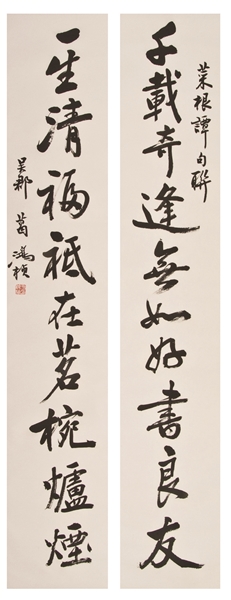 菜根譚句聯
千載奇逢無如好書良友
一生清福祇在茗椀爐煙
吴郡 葛鴻楨